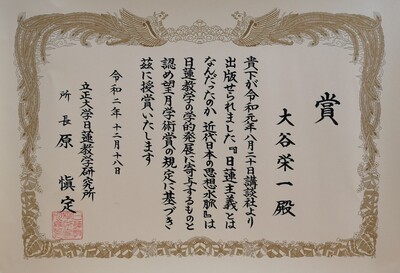 賞
大谷栄一殿
貴下が令和元年八月二十日講談社より
出版せられました『日蓮主義とは
なんだったのか 近代日本の思想水脈』は
日蓮教学の学的発展に寄与するものと
認め望月学術賞の規定に基づき
玆に授賞いたします
令和二年十二月十八日
立正大学日蓮教学研究所
所長 原愼定